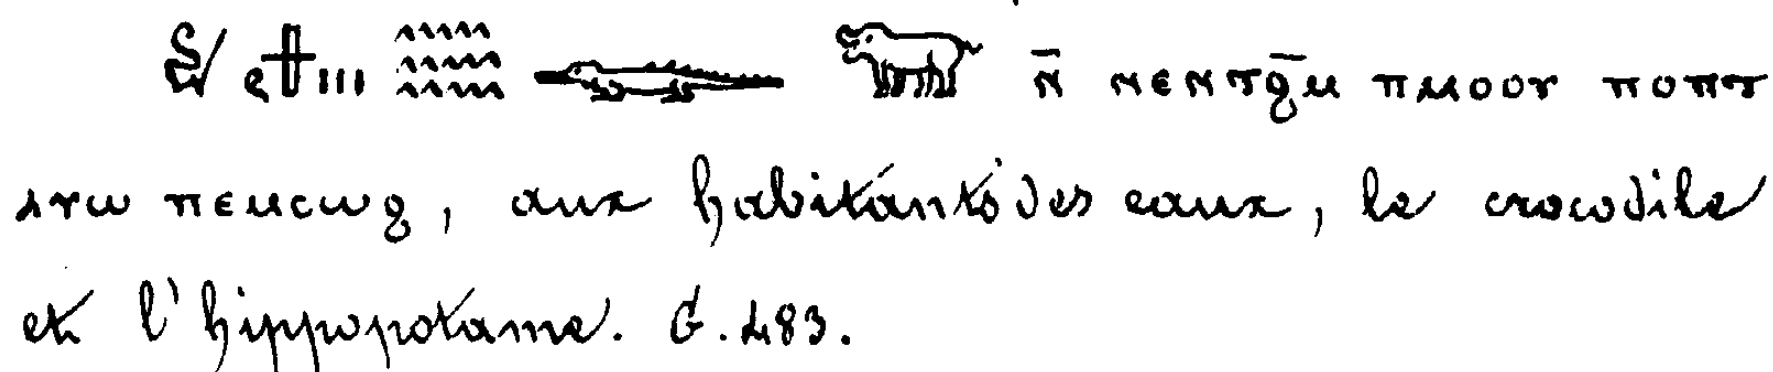 ⲛ̄ ⲛⲉⲛⲧϩ̄ⲙ ⲡⲙⲟⲟⲩ ⲡⲟⲡⲧ
ⲁⲩⲱ ⲡⲉⲙⲥⲱϩ, aux habitants des eaux, le crocodile
et l'hippopotame. G. 483.